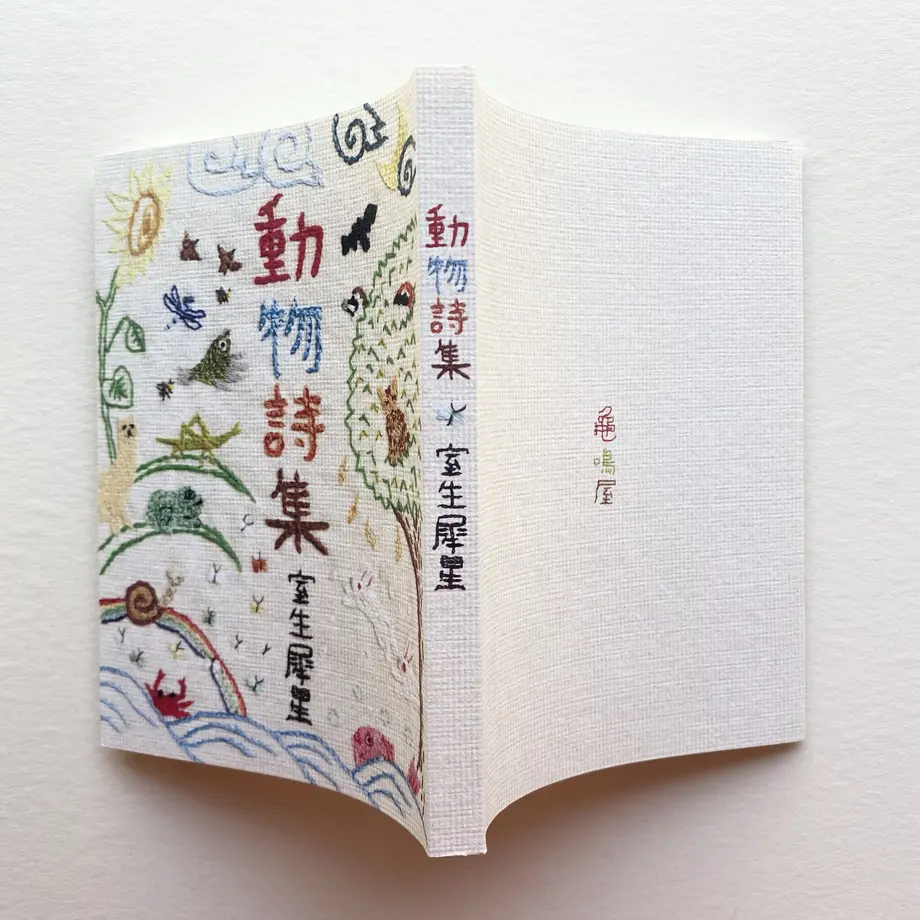 動物詩集
室生犀星
動物詩集 室生犀星
龜鳴屋